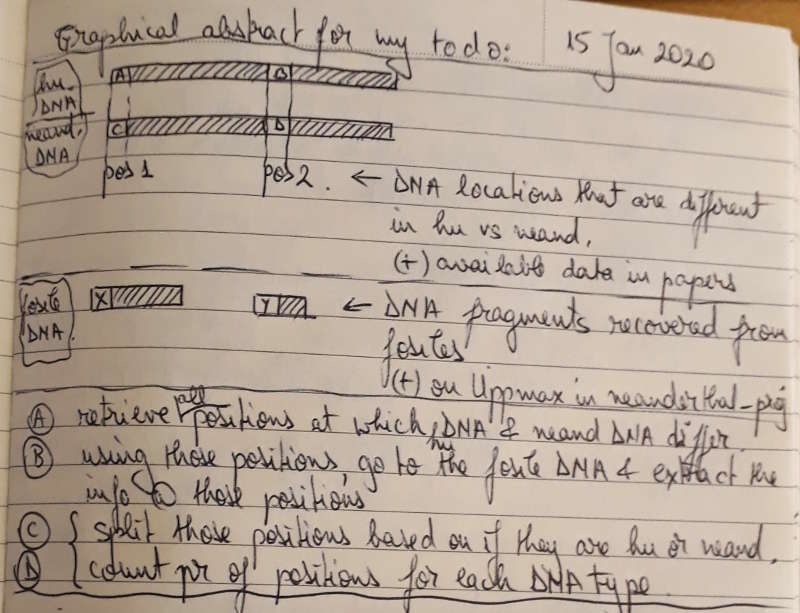 Graphical abstract for my todo:
15 Jan 2020
hu.
DNA
A B
neand.
DNA
C D
pos 1 pos 2. ← DNA locations that are different
in hu vs neand.
(+) available data in papers
fosile
DNA.
X Y ← DNA fragments recovered from
fosiles
(+) on Uppmax in neanderthal-proj
(A) retrieve all positions at which hu DNA & neand DNA differ.
(B) using those positions, go to the fosile DNA & extract the
info @ those positions
(C) { split those positions based on if they are hu or neand.
(D) { count nr of positions for each DNA type.